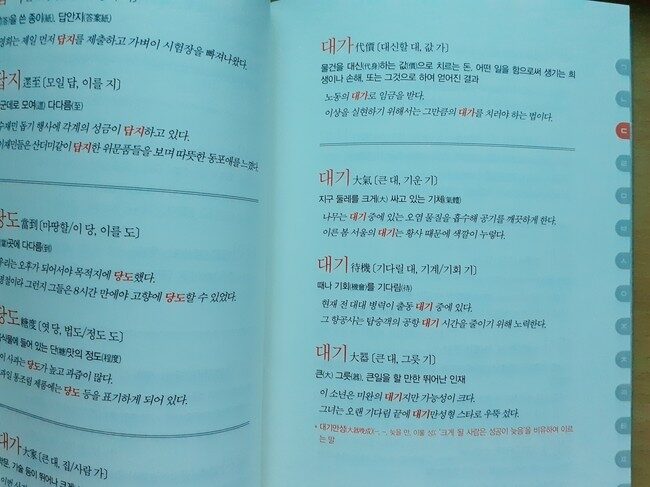 을 쓴 종이(紙), 답안지(答案紙)
영화는 제일 먼저 답지를 제출하고 가벼이 시험장을 빠져나왔다.
답지 遝至 [모일 답, 이를 지]
군데로 모여(遝) 다다름(至)
수재민 돕기 행사에 각계의 성금이 답지하고 있다.
이재민들은 산더미같이 답지한 위문품들을 보며 따뜻한 동포애를 느꼈다.
당도 當到 [마땅할/이 당, 이를 도]
곳에 다다름(到)
우리는 오후가 되어서야 목적지에 당도했다.
명절이라 그런지 그들은 8시간 만에야 고향에 당도할 수 있었다.
당도 糖度 [엿 당, 법도/정도 도]
식물에 들어 있는 단(糖)맛의 정도(程度)
이 사과는 당도가 높고 과즙이 많다.
과일 통조림 제품에는 당도 등을 표기하게 되어 있다.
대가 大家 [큰 대, 집/사람 가]
학문, 기술 등이 뛰어나 크게
대가 代價 [대신할 대, 값 가]
물건을 대신(代身)하는 값(價)으로 치르는 돈. 어떤 일을 함으로써 생기는 희
생이나 손해, 또는 그것으로 하여 얻어진 결과
노동의 대가로 임금을 받다.
이상을 실현하기 위해서는 그만큼의 대가를 치러야 하는 법이다.
대기 大氣 [큰 대, 기운 기]
지구 둘레를 크게(大) 싸고 있는 기체(氣體)
나무는 대기 중에 있는 오염 물질을 흡수해 공기를 깨끗하게 한다.
이른 봄 서울의 대기는 황사 때문에 색깔이 누렇다.
대기 待機 [기다릴 대, 기계/기회 기]
때나 기회(機會)를 기다림(待)
현재 전 대대 병력이 출동 대기 중에 있다.
그 항공사는 탑승객의 공항 대기 시간을 줄이기 위해 노력한다.
대기 大器 [큰 대, 그릇 기]
큰(大) 그릇(器), 큰일을 할 만한 뛰어난 인재
이 소년은 미완의 대기지만 가능성이 크다.
그녀는 오랜 기다림 끝에 대기만성형 스타로 우뚝 섰다.
* 대기만성(大器晩成)(–, –, 늦을 만, 이룰 성): '크게 될 사람은 성공이 늦음'을 비유하여 이르
는 말